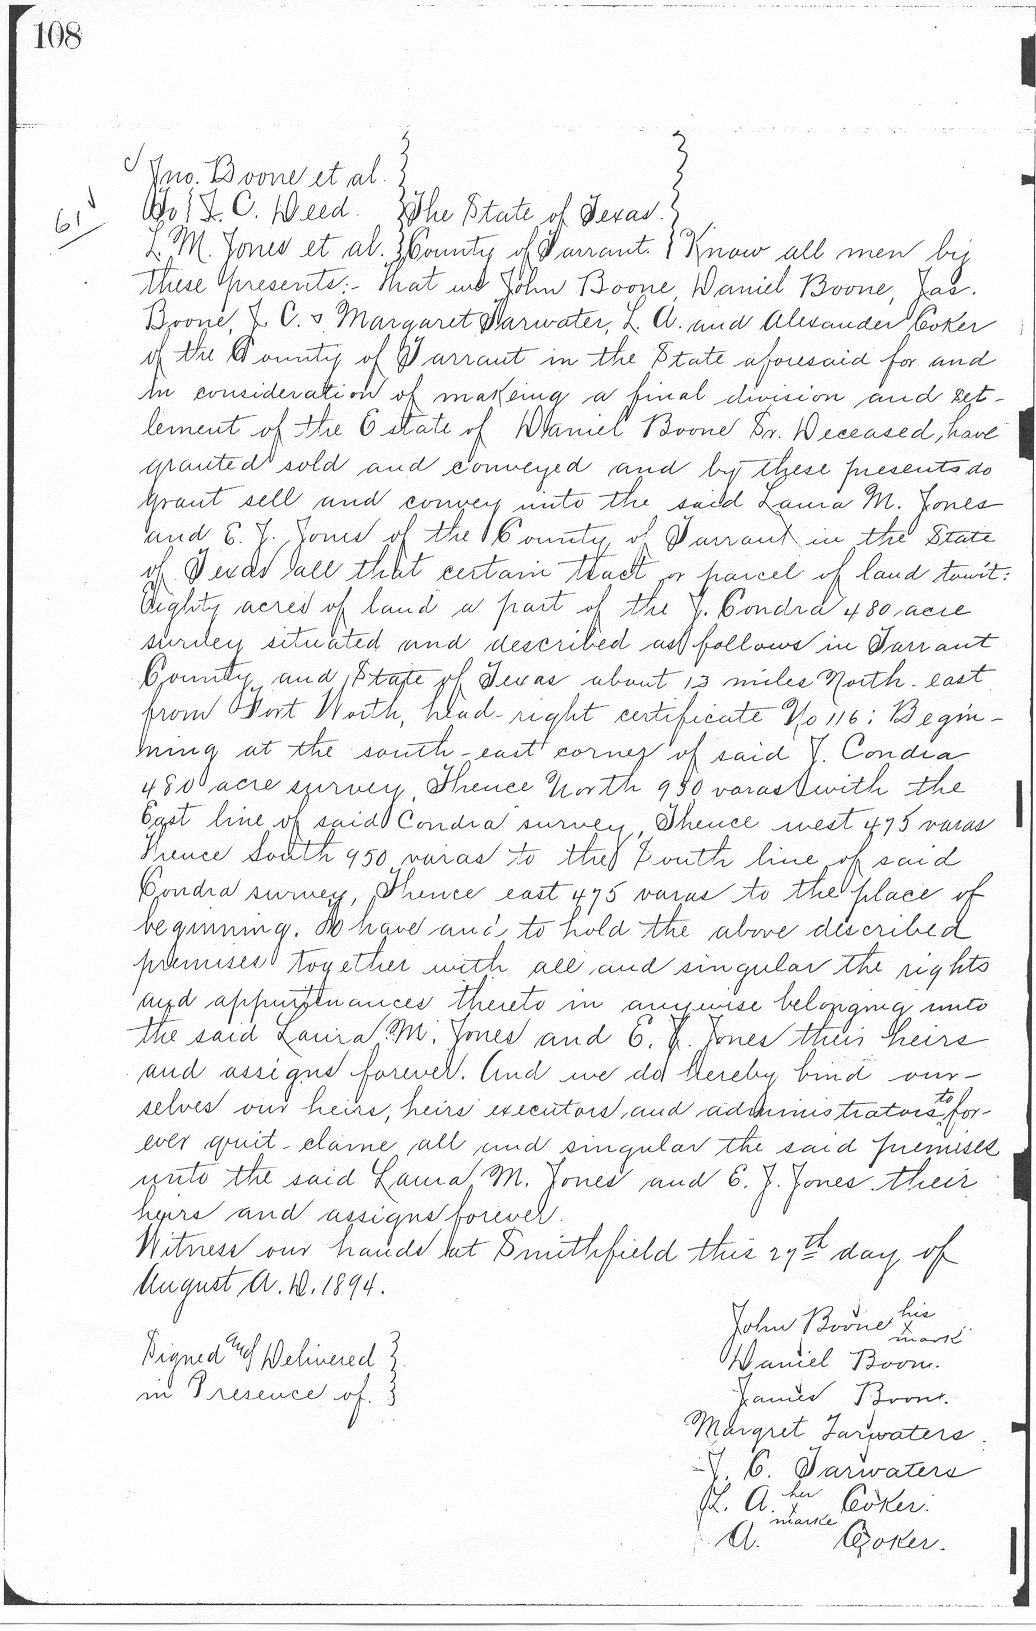 108
Jno. Boone et al.
To } Q. C. Deed. The State of Texas.
61
L. M. Jones et al. County of Tarrant. Know all men by
these presents:- That we John Boone, Daniel Boone, Jas.
Boone, J. C. & Margaret Tarwater, L. A. and Alexander Coker
of the County of Tarrant in the State aforesaid for and
in consideration of makeing a final division and set-
lement of the Estate of Daniel Boone Sr. Deceased, have
granted sold and conveyed and by these presents do
grant sell and convey unto the said Laura M. Jones
and E. J. Jones of the County of Tarrant in the State
of Texas all that certain tract or parcel of land towit:
Eighty acres of land a part of the J. Condra 480 acre
survey situated and described as follows in Tarrant
County and State of Texas about 13 miles North-east
from Fort Worth, head-right certificate No 116: Begin-
ning at the south-east corner of said J. Condra
480 acre survey, Thence North 950 varas with the
East line of said Condra survey, Thence west 475 varas
Thence South 950 varas to the South line of said
Condra survey, Thence east 475 varas to the place of
beginning. To have and to hold the above described
premises together with all and singular the rights
and appurtenances thereto in anywise belonging unto
the said Laura M. Jones and E. J. Jones their heirs
and assigns forever. And we do hereby bind our-
selves our heirs, heirs executors and administrators to for-
ever quit-clame all and singular the said premises
unto the said Laura M. Jones and E. J. Jones their
heirs and assigns forever.
Witness our hands at Smithfield this 27th day of
August A. D. 1894.
John Boone his x mark
Signed and Delivered
in Presence of.
Daniel Boone.
James Boone.
Margret Tarwaters
J. C. Tarwaters
L. A. her x marke Coker.
A. Coker.